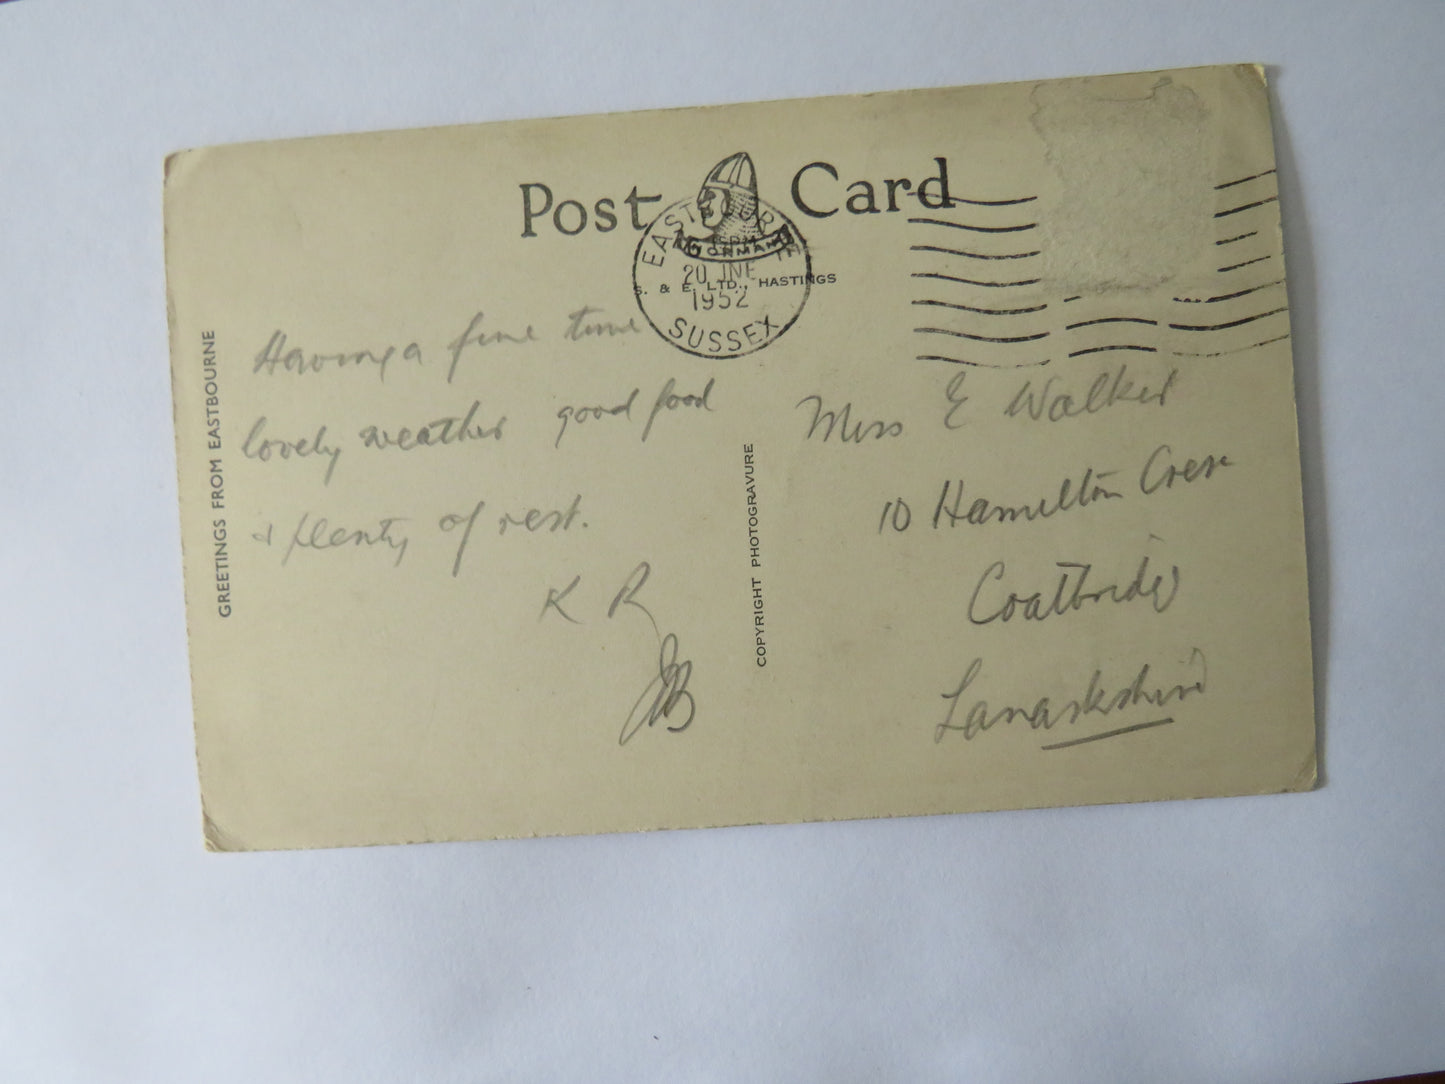 Post Card
NORMAN
S. & E. LTD., HASTINGS
EASTBOURNE
20 JNE
1952
SUSSEX
GREETINGS FROM EASTBOURNE
Having a fine time
lovely weather good food
& plenty of rest.
K R
COPYRIGHT PHOTOGRAVURE
Miss E Walker
10 Hamilton Cres
Coatbridge
Lanarkshire